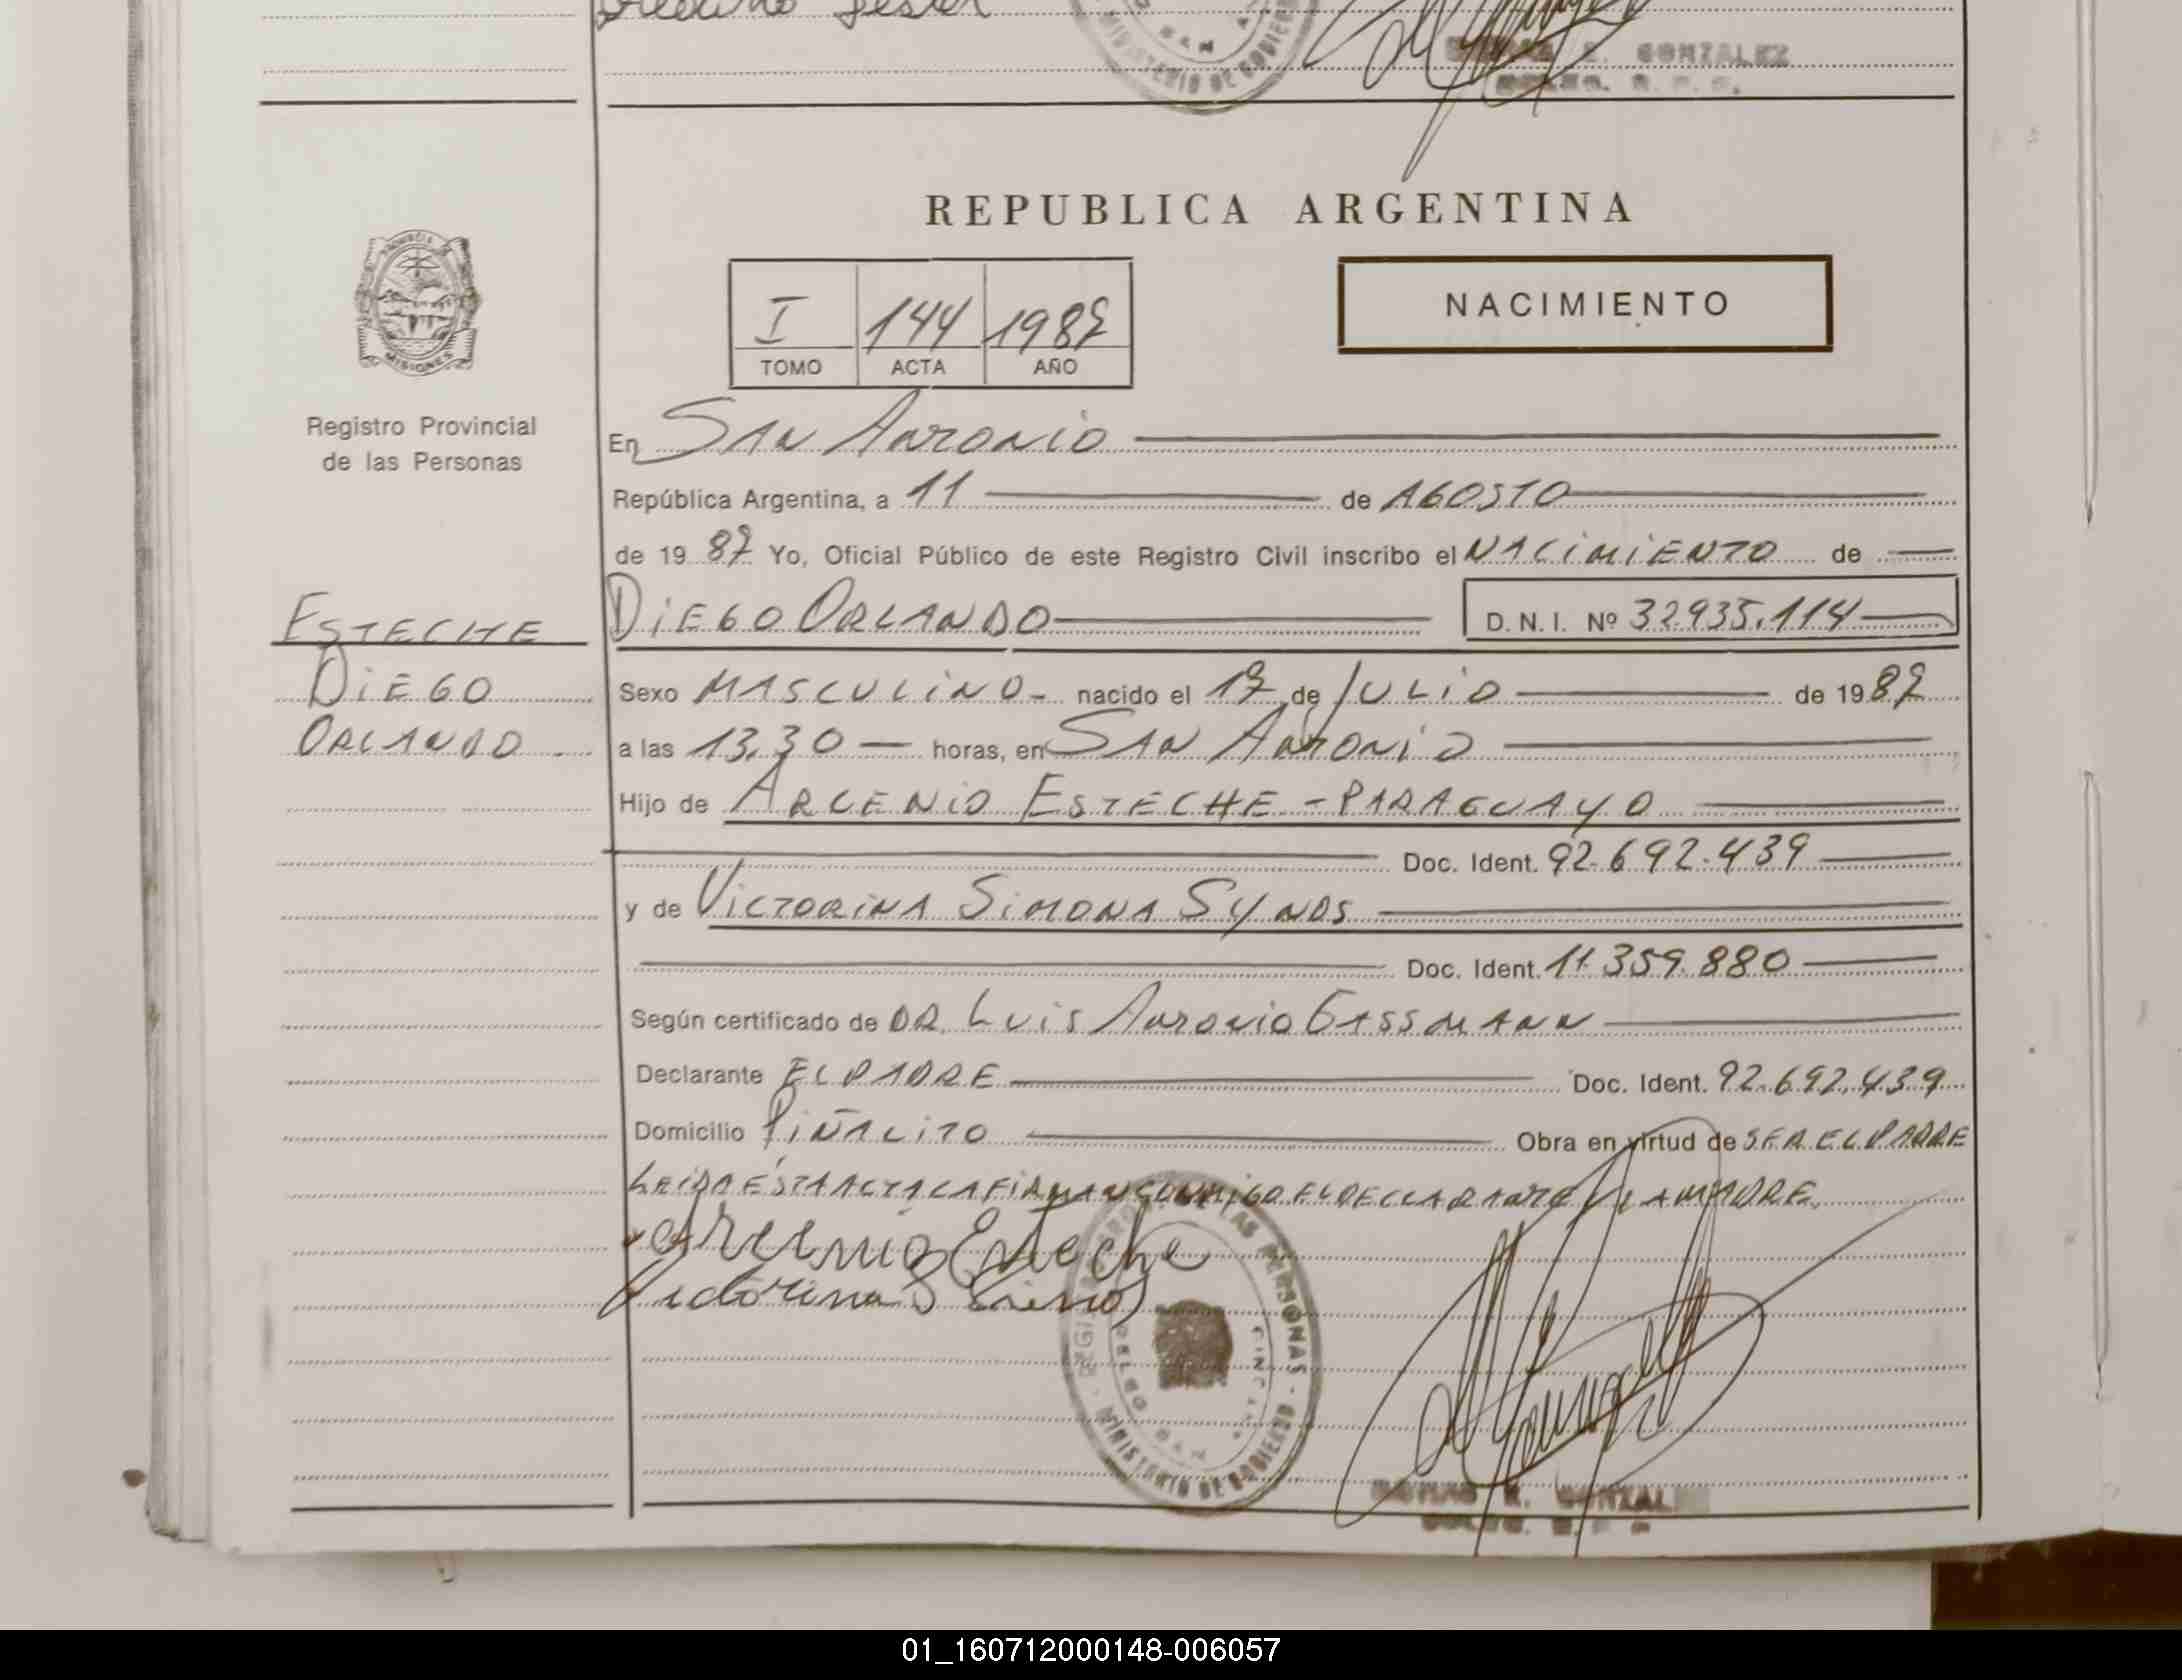 REPUBLICA ARGENTINA
PROVINCIA DE MISIONES
Registro Provincial
de las Personas
I 144 1987
TOMO ACTA AÑO
NACIMIENTO
En SAN ANTONIO
República Argentina, a 11 de AGOSTO
de 19 87 Yo, Oficial Público de este Registro Civil inscribo el NACIMIENTO de
ESTECHE
DIEGO
ORLANDO
DIEGO ORLANDO D.N.I. Nº 32935.114
Sexo MASCULINO - nacido el 17 de JULIO de 19 87
a las 13,30 horas, en SAN ANTONIO
Hijo de ARCENIO ESTECHE - PARAGUAYO
Doc. Ident. 92.692.439
y de VICTORINA SIMONA SYNOS
Doc. Ident. 11.359.880
Según certificado de DR. LUIS ANTONIO GASSMANN
Declarante EL PADRE Doc. Ident. 92.692.439
Domicilio PIÑALITO Obra en virtud de SER EL PADRE
LEIDA ÉSTA ACTA LA FIRMAN CONMIGO EL DECLARANTE Y LA MADRE.
Arcenio Esteche
Victorina S
REGISTRO PROV. DE LAS PERSONAS
MINISTERIO DE GOBIERNO
01_160712000148-006057